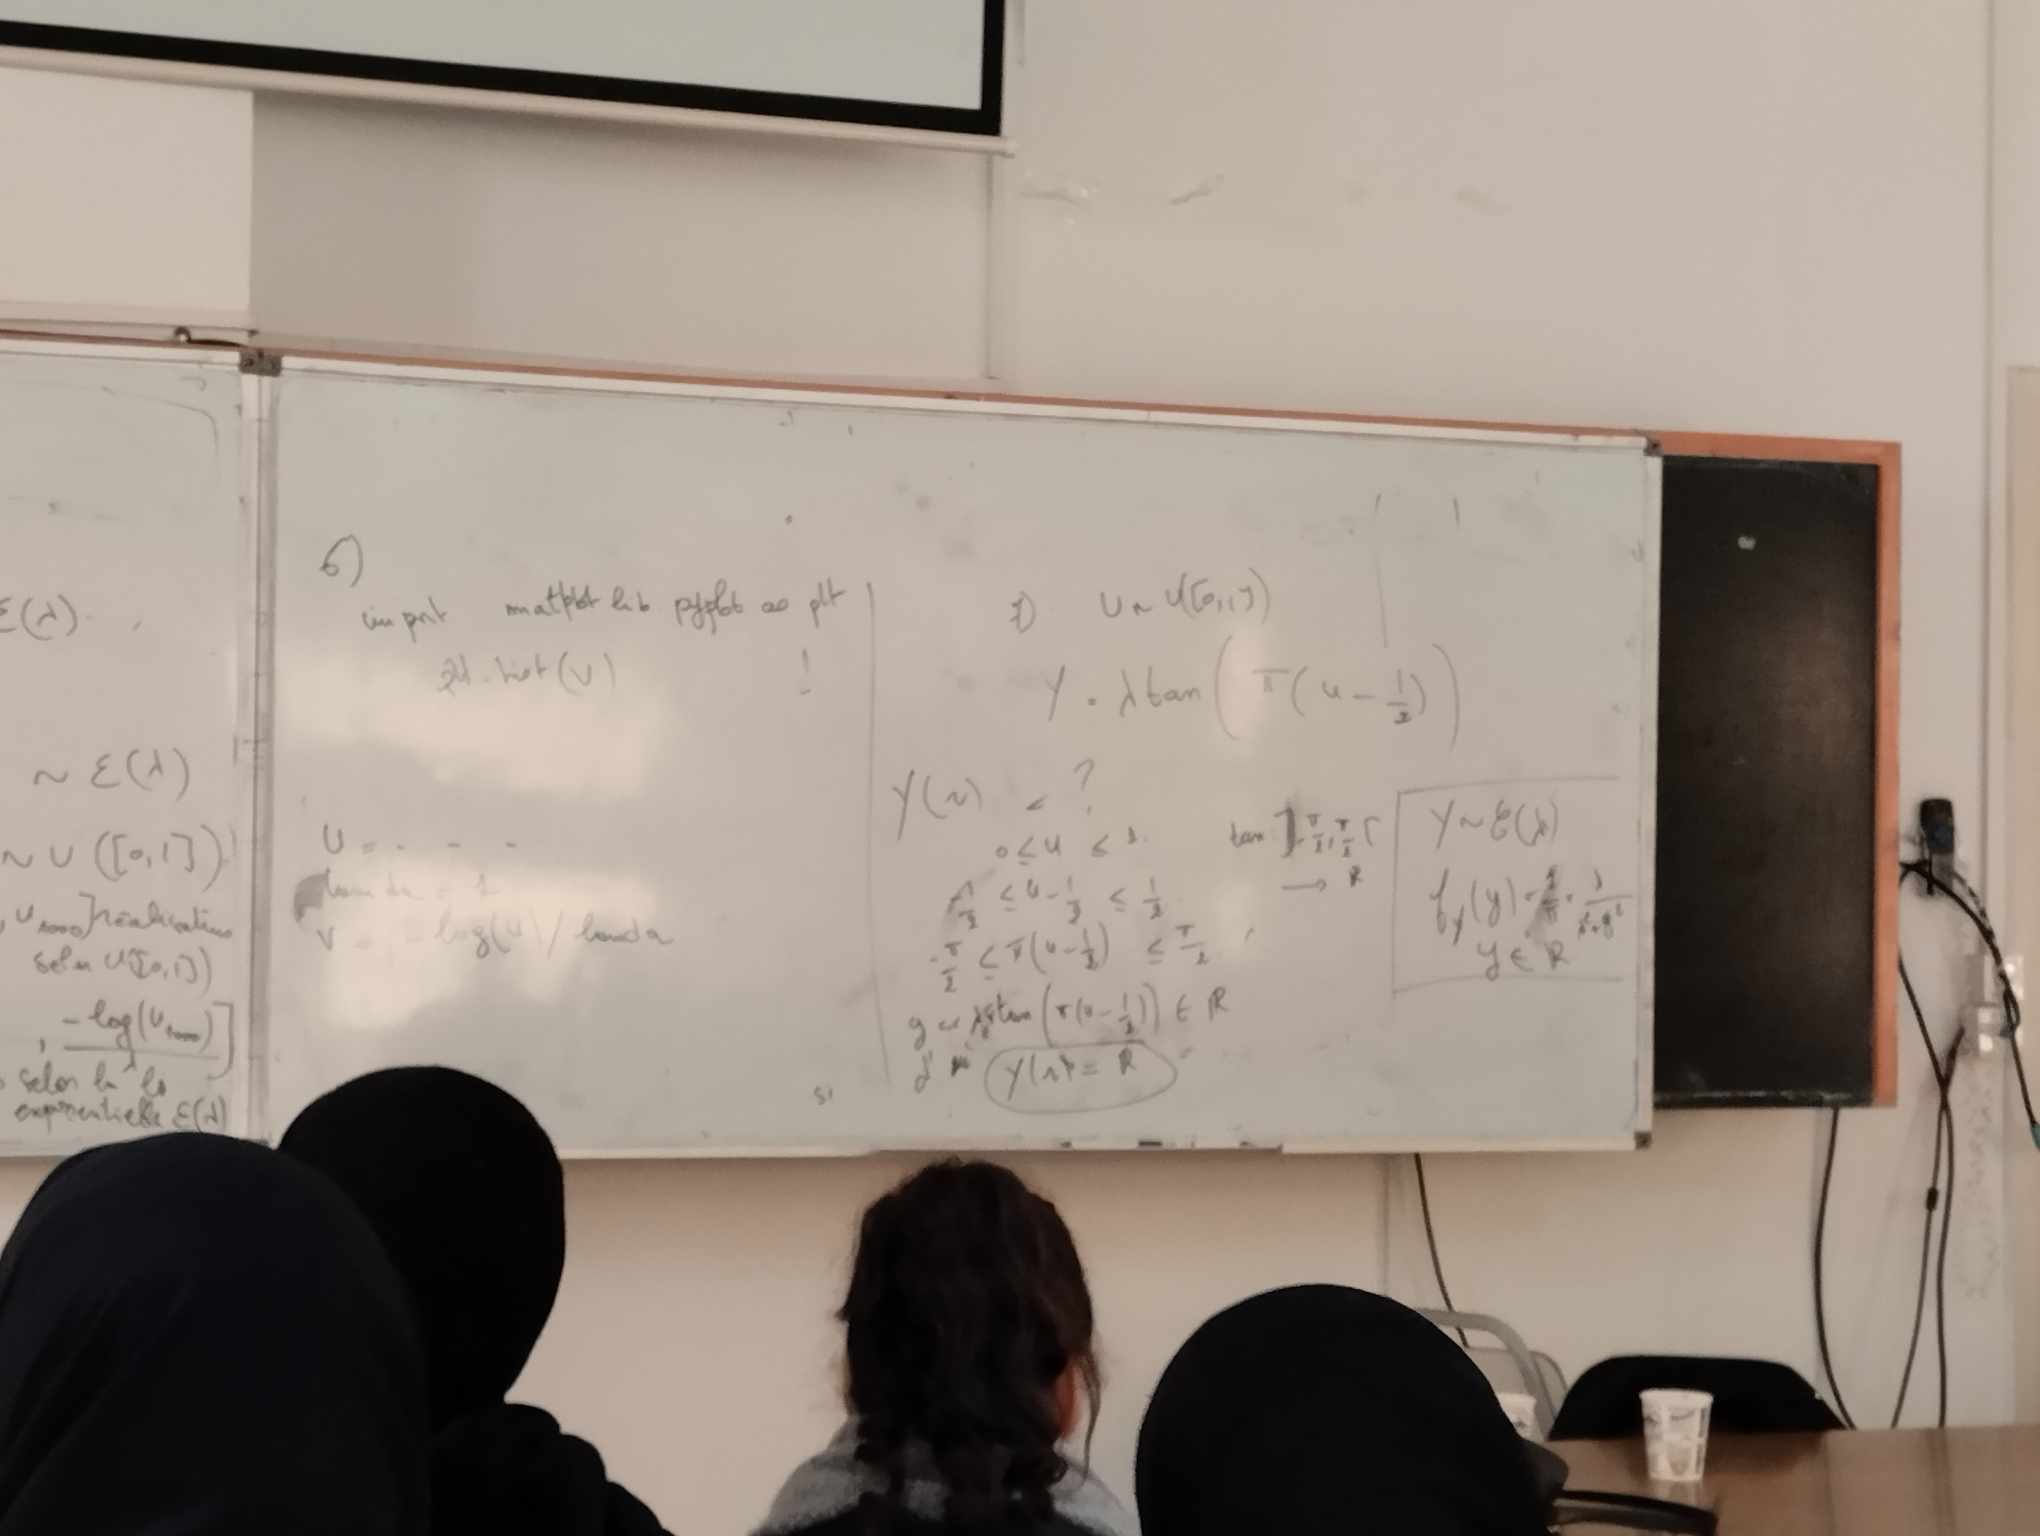 ε(λ).
~ ε(λ)
~ U ([0,1])
, u₁₀₀₀] réalisations
selon U([0,1])
, -log(u₁₀₀₀)]
λ
selon la loi
exponentielle ε(λ)
6)
import matplotlib pyplot as plt
plt.hist(v)
!
U = . - -
lamda = 1
V = -log(u) / lamda
7) U ~ U([0,1])
Y = λ tan(π(u - 1/2))
Y(Ω) = ?
0 ≤ u ≤ 1
-1/2 ≤ u - 1/2 ≤ 1/2
-π/2 ≤ π(u - 1/2) ≤ π/2
tan(π(u - 1/2)) ∈ ℝ
Y(Ω) = ℝ
tan ]-π/2, π/2[
→ ℝ
Y ~ C(λ)
f_Y(y) = 1/π · λ/(λ²+y²)
y ∈ ℝ